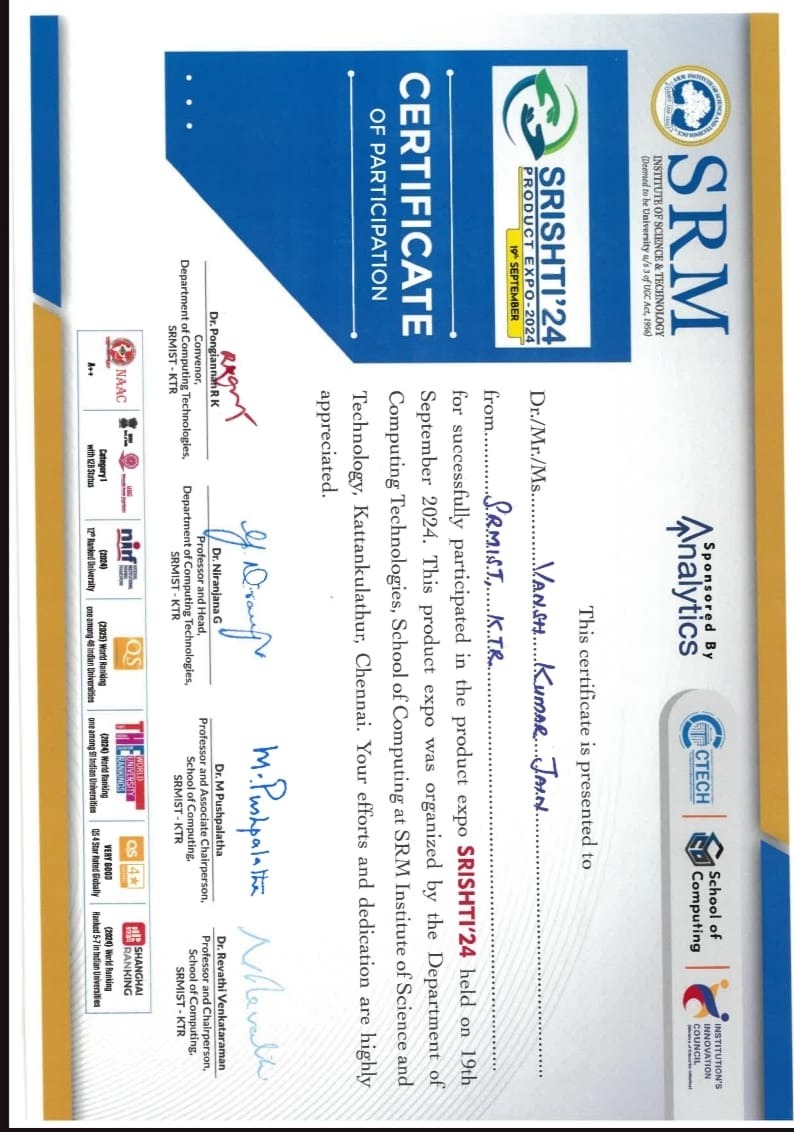 SRM
INSTITUTE OF SCIENCE & TECHNOLOGY
(Deemed to be University u/s 3 of UGC Act, 1956)
Sponsored By
Analytics
CTECH
School of
Computing
INSTITUTION'S
INNOVATION
COUNCIL
SRISHTI'24
PRODUCT EXPO-2024
19th SEPTEMBER
CERTIFICATE
OF PARTICIPATION
This certificate is presented to
Dr./Mr./Ms. VANSH KUMAR JAIN
from SRMIST, KTR
for successfully participated in the product expo SRISHTI'24 held on 19th
September 2024. This product expo was organized by the Department of
Computing Technologies, School of Computing at SRM Institute of Science and
Technology, Kattankulathur, Chennai. Your efforts and dedication are highly
appreciated.
Dr. Pongiannan R K
Convenor,
Department of Computing Technologies,
SRMIST - KTR
G. Niranjana
Dr. Niranjana G
Professor and Head,
Department of Computing Technologies,
SRMIST - KTR
M. Pushpalatha
Dr. M Pushpalatha
Professor and Associate Chairperson,
School of Computing,
SRMIST - KTR
N Revathi
Dr. Revathi Venkataraman
Professor and Chairperson,
School of Computing,
SRMIST - KTR
NAAC
A++
UGC
Category I
with 12B Status
nirf
(2024)
12th Ranked University
QS
(2025) World Ranking
one among 46 Indian Universities
THE WORLD
UNIVERSITY
RANKINGS
(2024) World Ranking
one among 91 Indian Universities
QS 4★
VERY GOOD
QS 4 Star Rated Globally
SHANGHAI
RANKING
(2024) World Ranking
Ranked 5-7 in Indian Universities